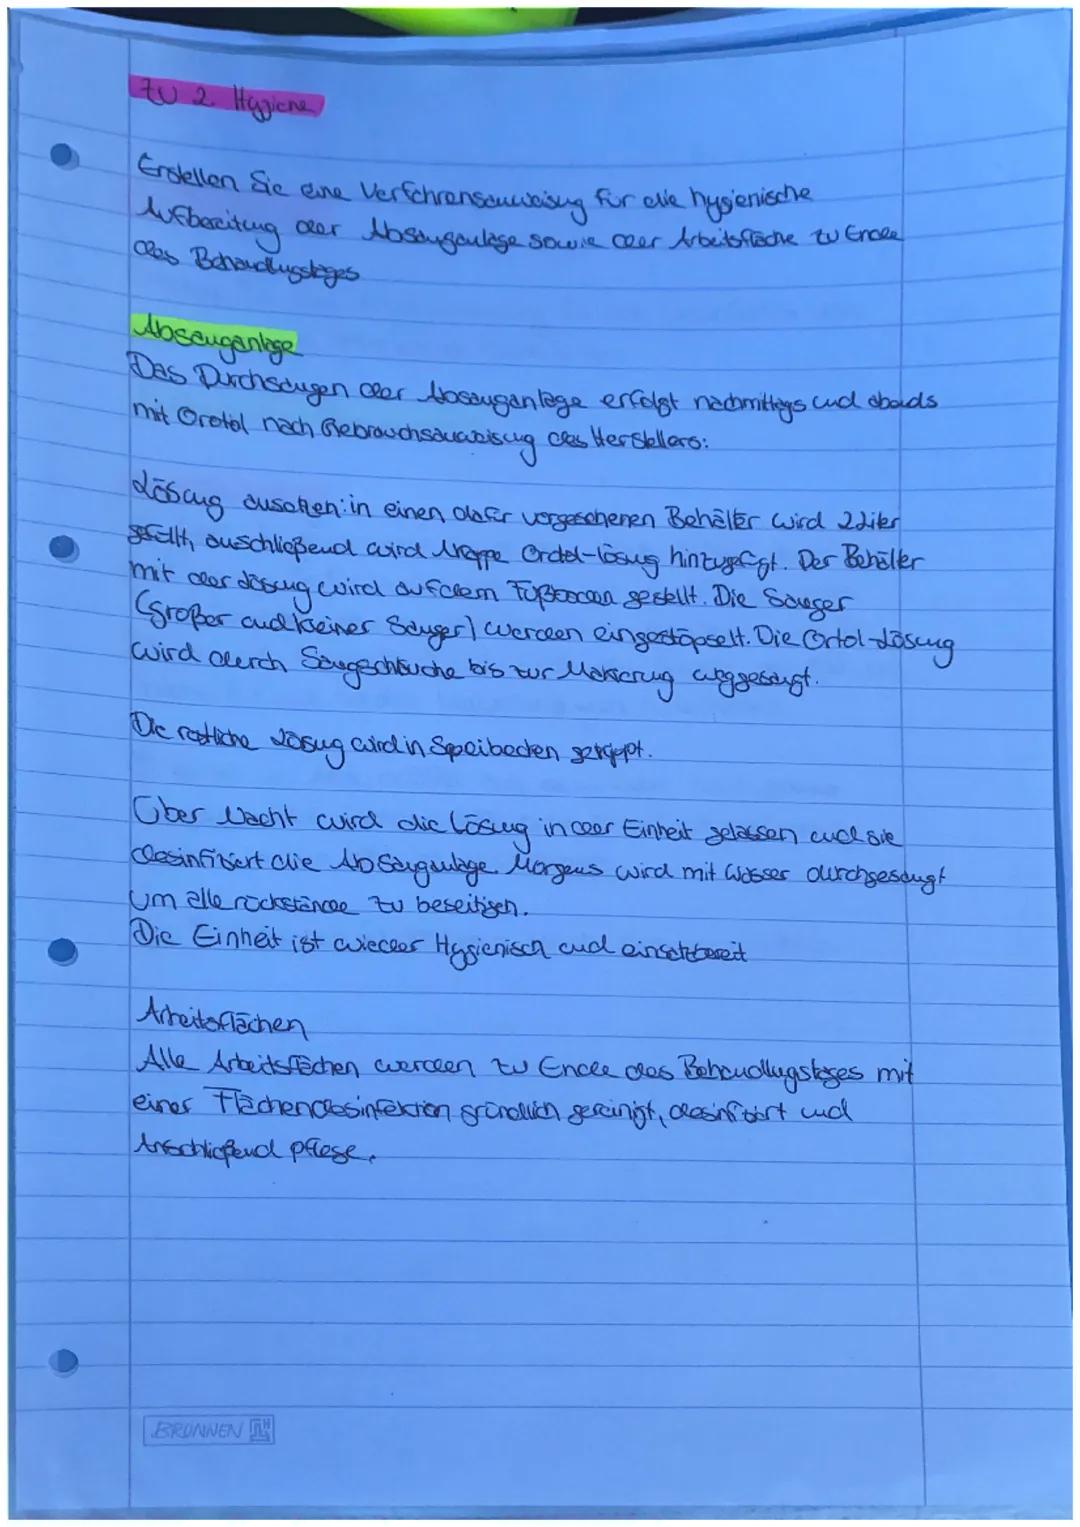 Zu 2. Hygiene
Erstellen Sie eine Verfahrensanweisung für die hygienische
Aufbereitung der Absauganlage sowie der Arbeitsfläche zu Ende
des Behandlungstages
Absauganlage
Das Durchsaugen der Absauganlage erfolgt nachmittags und abends
mit Orotol nach Gebrauchsanweisung des Herstellers:
Lösung ansetzen: in einen dafür vorgesehenen Behälter wird 2 Liter
gefüllt, anschließend wird 1 Kappe Orotol-lösung hinzugefügt. Der Behälter
mit der Lösung wird auf dem Fußboden gestellt. Die Sauger
(Großer und kleiner Sauger) werden eingestöpselt. Die Ortol-Lösung
wird durch Saugschläuche bis zur Markierung weggesaugt.
Die restliche Lösung wird in Speibecken gekippt.
Über Nacht wird die Lösung in der Einheit gelassen und sie
desinfiziert die Absauganlage. Morgens wird mit Wasser durchgesaugt
um alle rückstände zu beseitigen.
Die Einheit ist wieder Hygienisch und einsatzbereit
Arbeitsflächen
Alle Arbeitsflächen werden zu Ende des Behandlungstages mit
einer Flächendesinfektion gründlich gereinigt, desinfiziert und
Anschließend pflege.
BRUNNEN